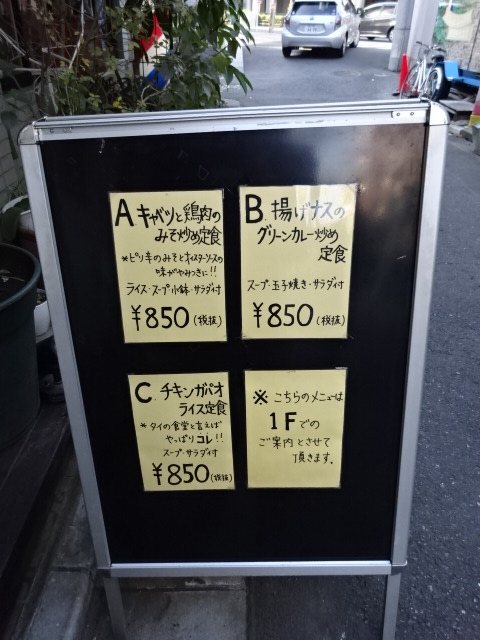 A キャベツと鶏肉の
みそ炒め定食
*ピリ辛のみそとオイスターソースの
味がやみつきに!!
ライス・スープ小鉢・サラダ付
¥850(税抜)
B. 揚げナスの
グリーンカレー炒め
定食
スープ・玉子焼き・サラダ付
¥850(税抜)
C. チキンガパオ
ライス定食
*タイの食堂と言えば
やっぱりコレ!!
スープ・サラダ付
¥850(税抜)
※こちらのメニューは
1Fでの
ご案内とさせて
頂きます。